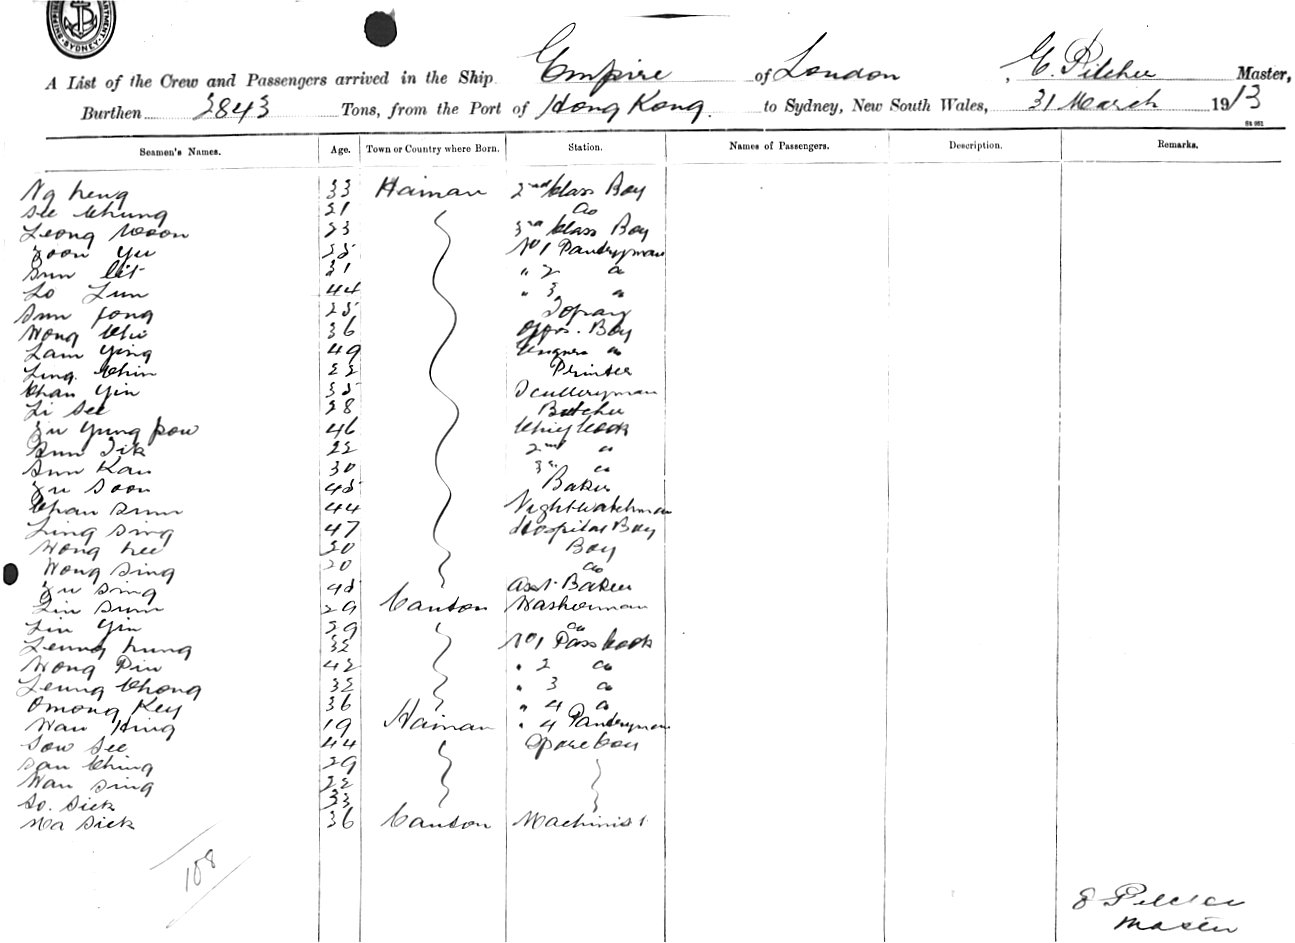 SHIPPING DEPARTMENT SYDNEY
A List of the Crew and Passengers arrived in the Ship Empire of London, E. Pilcher Master,
Burthen 3843 Tons, from the Port of Hong Kong. to Sydney, New South Wales, 31 March 1913
Seamen's Names. Age. Town or Country where Born. Station. Names of Passengers. Description. Remarks.
Ng Heng 33 Hainan 2nd Class Boy
See Chung 21 do
Leong Woon 23 3rd Class Boy
Yoon Yu 35 No 1 Pantryman
Sun Lit 31 " 2 do
Lo Lun 44 " 3 do
Sun Fong 25
Wong Chi 36 Offrs. Boy
Lam Ying 49 Engnrs do
Ling Chin 22 Printer
Chan Yin 35 Sculleryman
Li See 28 Butcher
Yu Yung Pow 46 Chief Cook
Sun Tik 22 2nd do
Sun Kau 30 3rd do
Yu Soon 45 Baker
Chan Sum 44 Nightwatchman
Ling Sing 47 Hospital Boy
Wong Kee 20 Boy
Wong Sing 20 do
Yu Sing 45 Asst Baker
Lin Sum 29 Canton Washerman
Lin Yin 29 do
Leung Hung 32 No 1 Pass Cook
Wong Piu 42 " 2 do
Leung Chong 32 " 3 do
Omong Key 36 " 4 do
Wan Hing 19 Hainan " 4 Pantryman
Sow See 44 Spare boy
San Ching 29
Wan Sing 22
So. Sick 33
Ma Sick 36 Canton Machinist
108
E Pilcher
Master